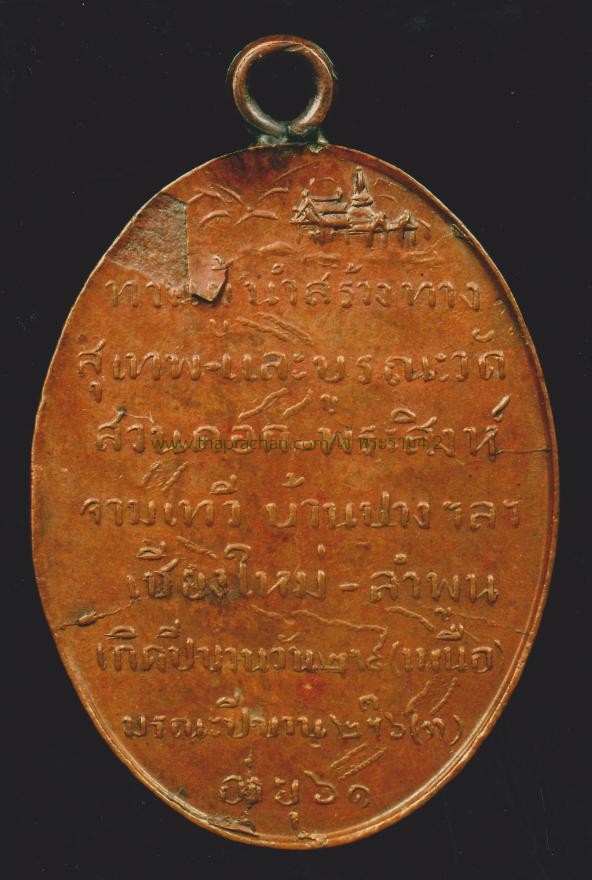 ทานผู้นำสร้างทาง
สุเทพ-และบูรณะวัด
สวนดอก พระสิงห์
จามเทวี บ้านปาง ฯลฯ
เชียงใหม่ - ลำพูน
เกิดปีขาน (เหนือ)
มรณะปีขาน (๓)
อายุ ๖๑
www.thaprachan.com/โจ้ พระราม 2